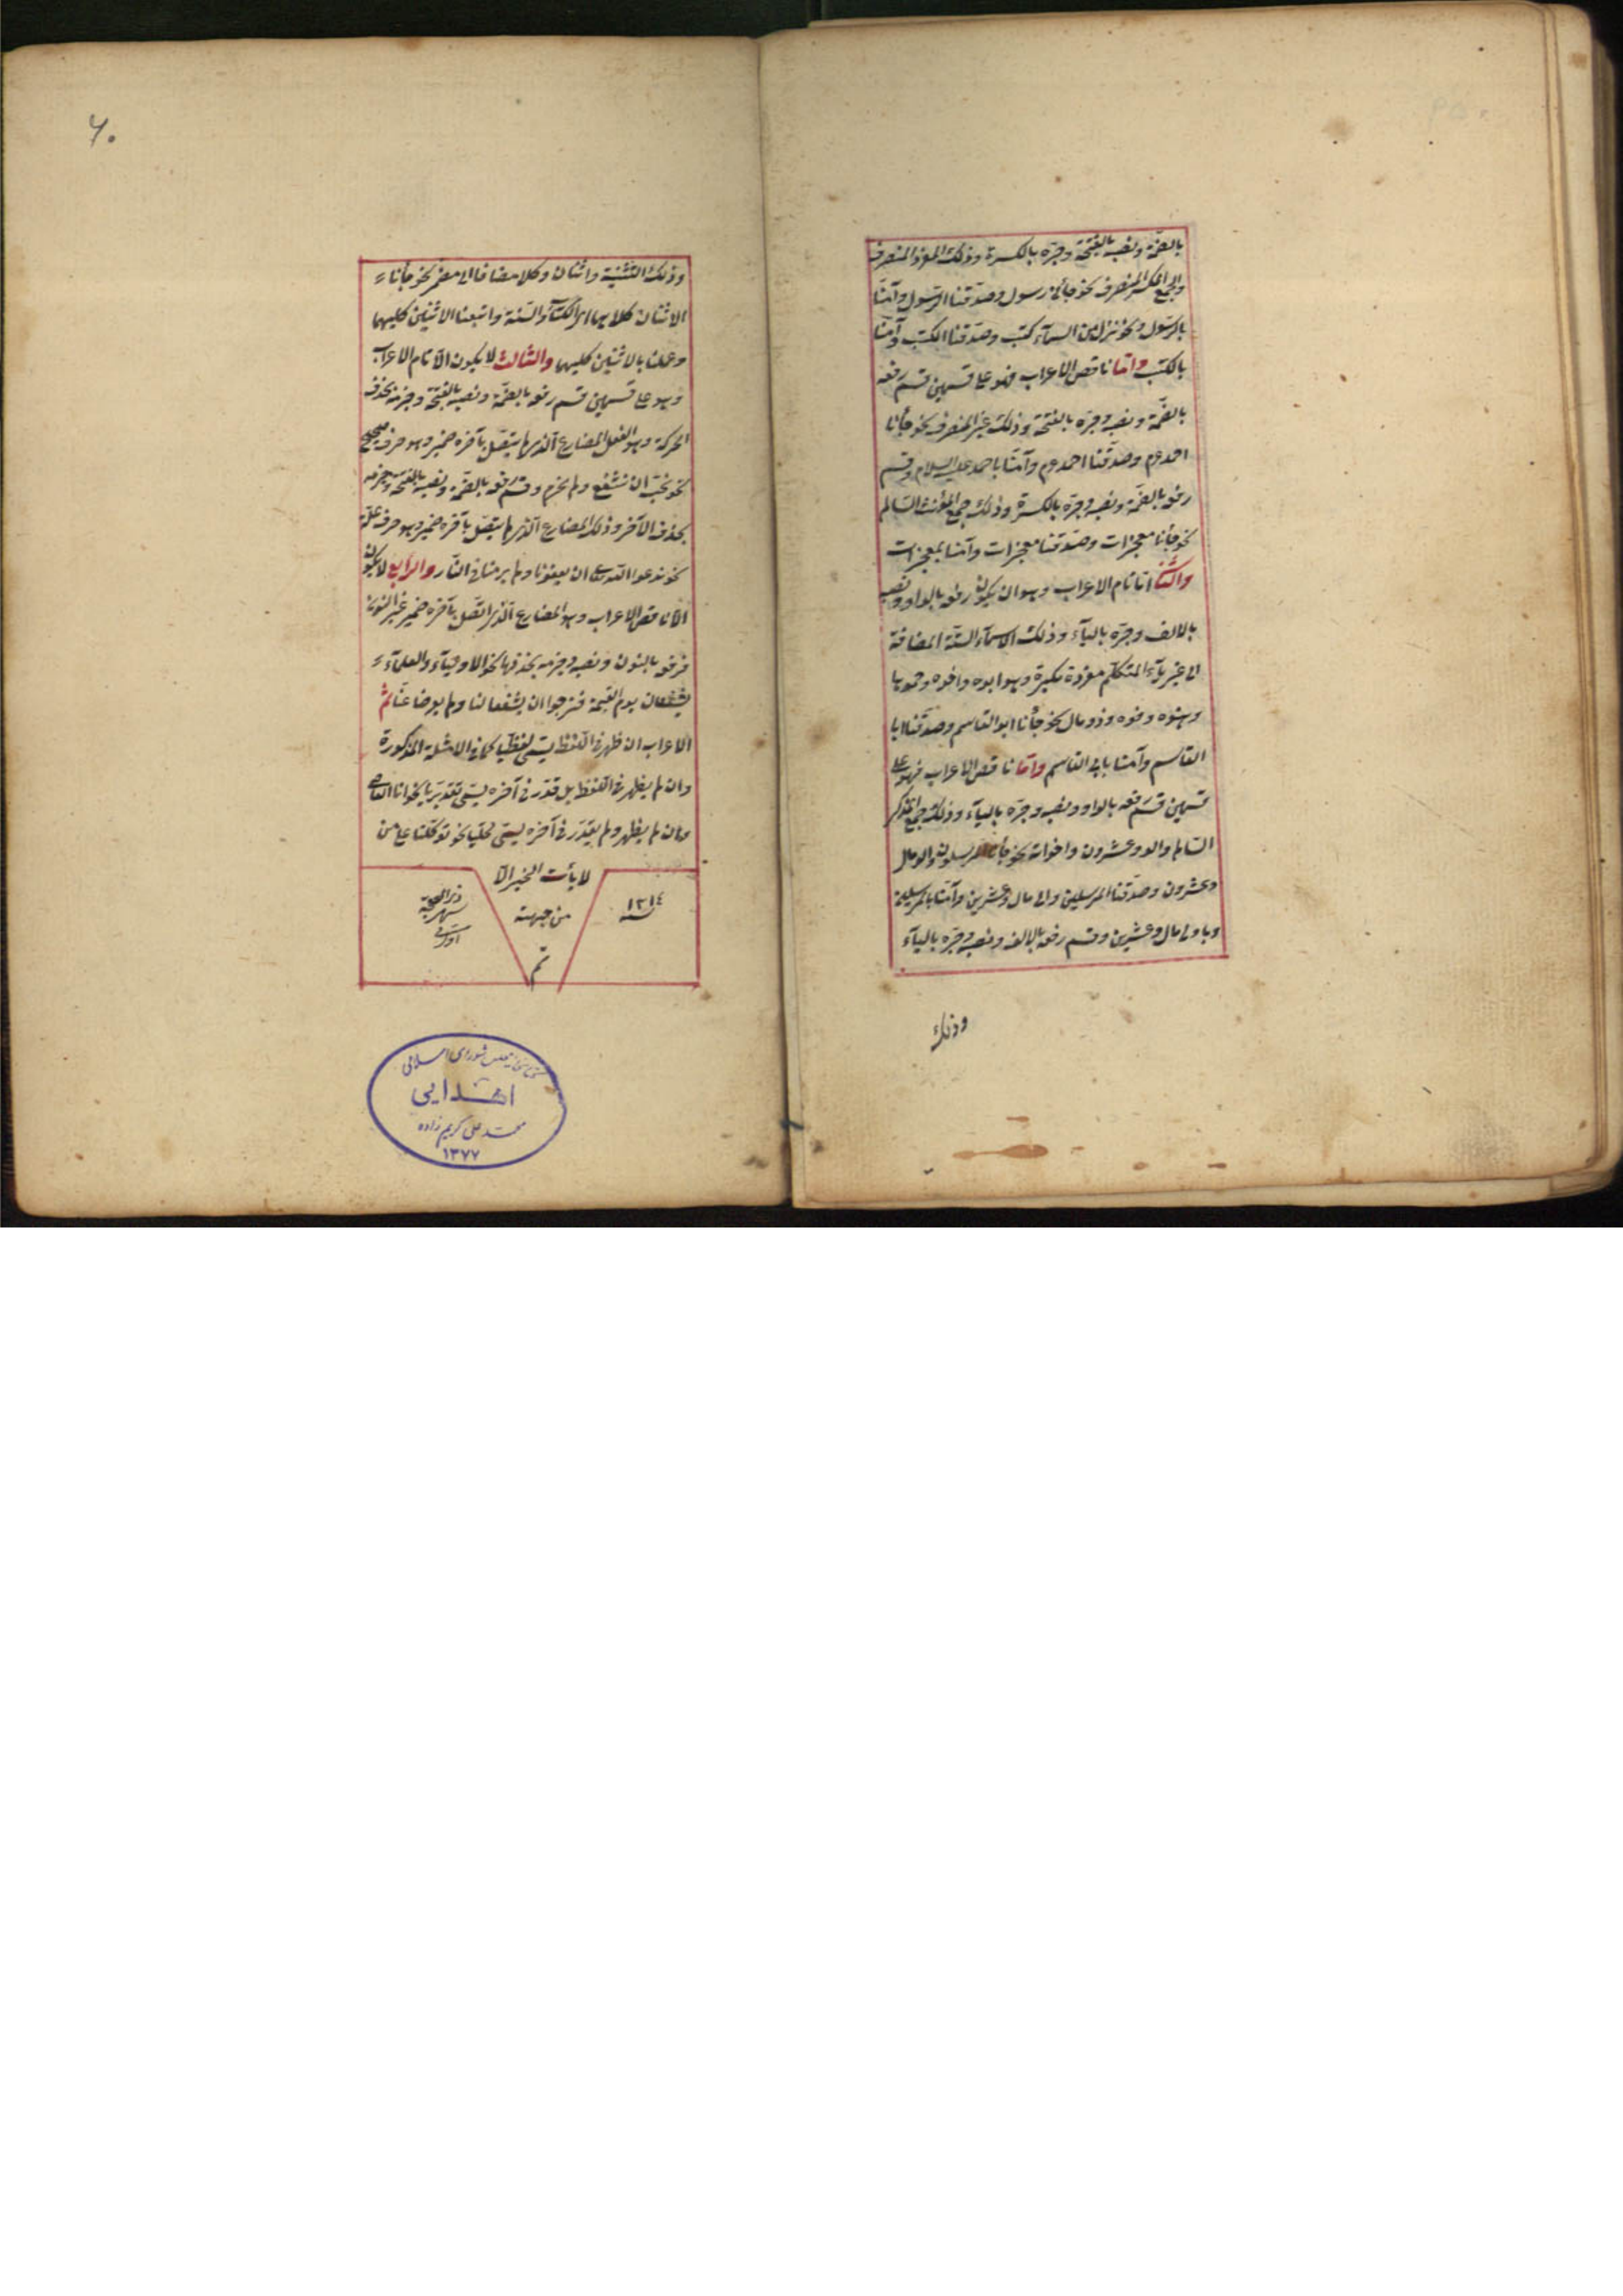 بالضمّة ونصبه بالفتحة وجرّه بالكسرة وذلك المفرد المنصرف
والجمع المكسر المنصرف نحو جائنا رسول وصدّقنا الرسول وآمنّا
بالرسول ونحو نزل من السمآء كتب وصدّقنا الكتب وآمنّا
بالكتب وامّا ناقص الاعراب فهو على قسمين قسم رفعه
بالضمّة ونصبه وجرّه بالفتحة وذلك غير المنصرف نحو جأنا
احمد وصدّقنا احمد وآمنّا باحمد عليه السلام وقسم
رفعه بالضمّة ونصبه وجرّه بالكسرة وذلك جمع المؤنث السالم
نحو جأنا معجزات وصدّقنا معجزات وآمنا بمعجزات
امّا تام الاعراب وهو ان يكون رفعه بالواو ونصبه
بالالف وجرّه باليآء وذلك الاسمآء الستّة المضافة
الى غير يآء المتكلّم مفردة مكبرة وهو ابوه واخوه وحموها
وهنوه وفوه وذو مال نحو جأنا ابو القاسم وصدّقنا ابا
القاسم وآمنا بابى القاسم وامّا ناقص الاعراب فهو على
قسمين قسم رفعه بالواو ونصبه وجرّه باليآء وذلك جمع المذكر
السالم والو وعشرون واخواته نحو جأنا المرسلون والو مال
وعشرون وصدّقنا المرسلين والى مال وعشرين وآمنّا بالمرسلين
وباولى مال وعشرين وقسم رفعه بالالف ونصبه وجرّه باليآء
وذلك
٦٠
وذلك التثنية واثنان وكلا مضافا الى مضمر نحو جأناء
الاثنان كلاهما اى الكتاب والسنّة واتبعنا الاثنين كليهما
وعملنا بالاثنين كليهما والثالث لا يكون الّا تام الاعراب
وهو على قسمين قسم رفعه بالضمّة ونصبه بالفتحة وجزمه بحذف
الحركة وهو الفعل المضارع الّذى لم يتّصل بآخره ضمير وهو حرف صحيح
نحو نحبّ ان نشفع ولم نحرم وقسم رفعه بالضمّة ونصبه بالفتحة وجزمه
بحذف الآخر وذلك المضارع الّذى لم يتصّل بآخره ضمير وهو حرف علّة
نحو ندعو الله تعالى ان يعفونا ولم يرمنا فى النّار والرابع لا يكون
الّا ناقص الاعراب وهو المضارع الّذى اتّصل بآخره ضمير غير النون
فرفعه بالنون ونصبه وجزمه بحذفها نحو الاوليآء والعلمآء
يشفعان يوم القيمة فنرجوا ان يشفعا لنا ولم يعرضا عنّا ثمّ
الاعراب ان ظهر فى اللّفظ يسمّى لفظيّا كما فى الامثلة المذكورة
وان لم يظهر فى اللّفظ بل قدّر فى آخره يسمّى تقديريّا نحو انا العاصى
وان لم يظهر ولم يقدّر فى آخره يسمّى محلّيا نحو توكّلنا على من
لا يأت الخير الّا
من جهته
تم
١٣١٤
سنه
ذى الحجة
كتابخانه مجلس شوراى اسلامى
اهدايى
محمد على كريم زاده
١٣٧٧